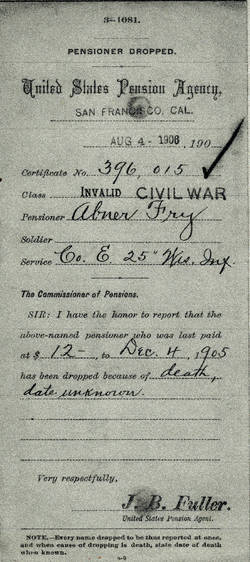 3-1081.
PENSIONER DROPPED.
United States Pension Agency,
SAN FRANCISCO, CAL.
AUG 4 - 1906 190
Certificate No. 396,015
Class INVALID CIVIL WAR
Pensioner Abner Fry
Soldier
Service Co. E. 25" Wis. Inf.
The Commissioner of Pensions.
SIR: I have the honor to report that the
above-named pensioner who was last paid
at $ 12- to Dec. 4, 1905
has been dropped because of death,
date unknown.
Very respectfully,
J. B. Fuller.
United States Pension Agent.
NOTE.—Every name dropped to be thus reported at once,
and when cause of dropping is death, state date of death
when known.